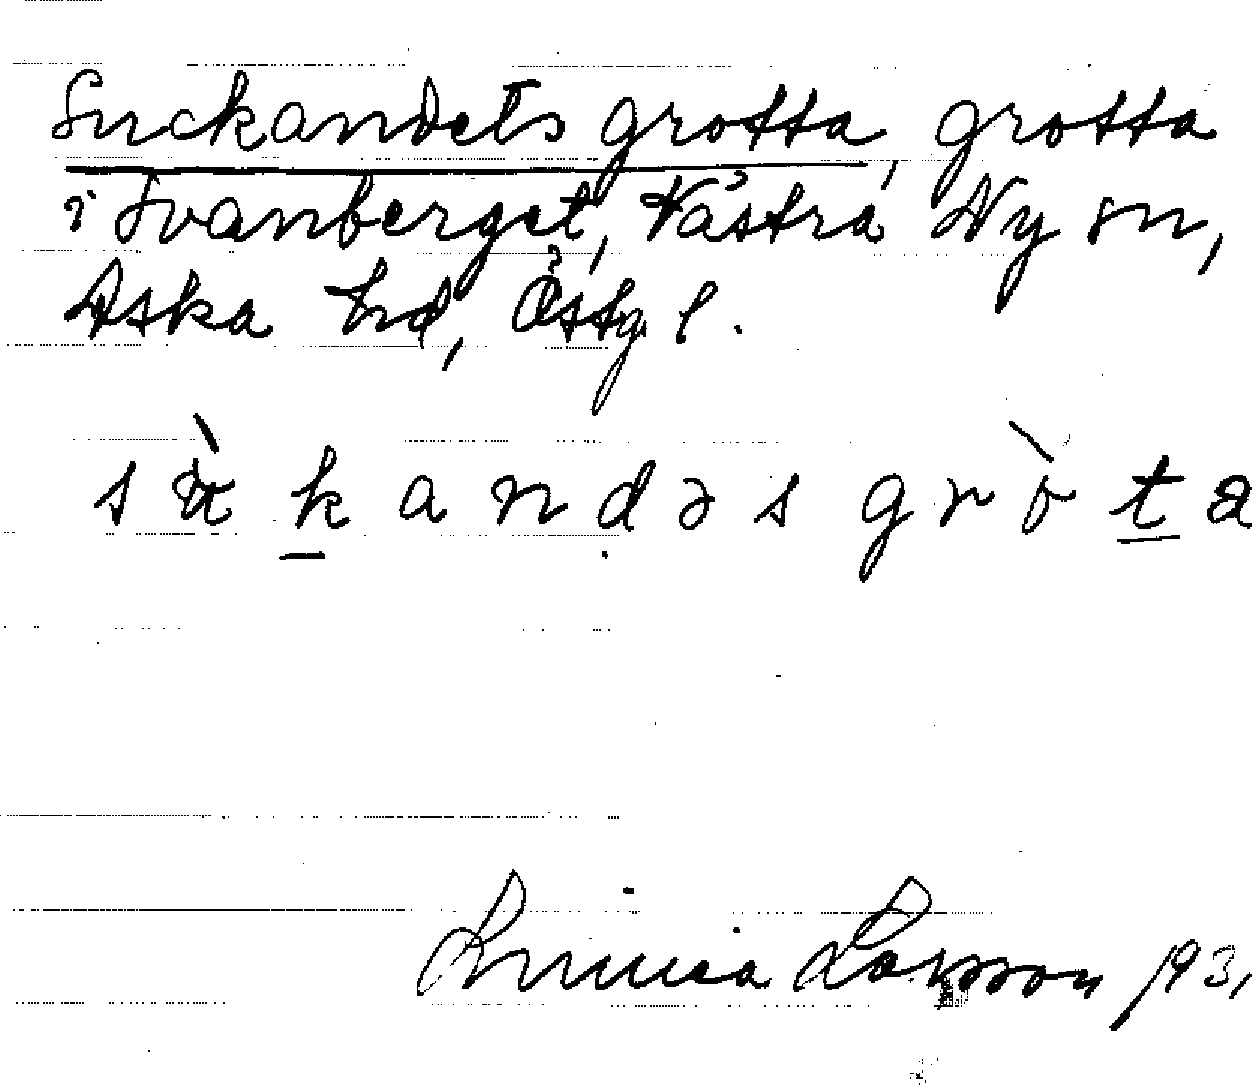 Suckandets grotta, grotta
i Svanberget, Västra Ny sn,
Aska hd, Östg l.
sùkandəs gròta
Linnea Larsson 1931